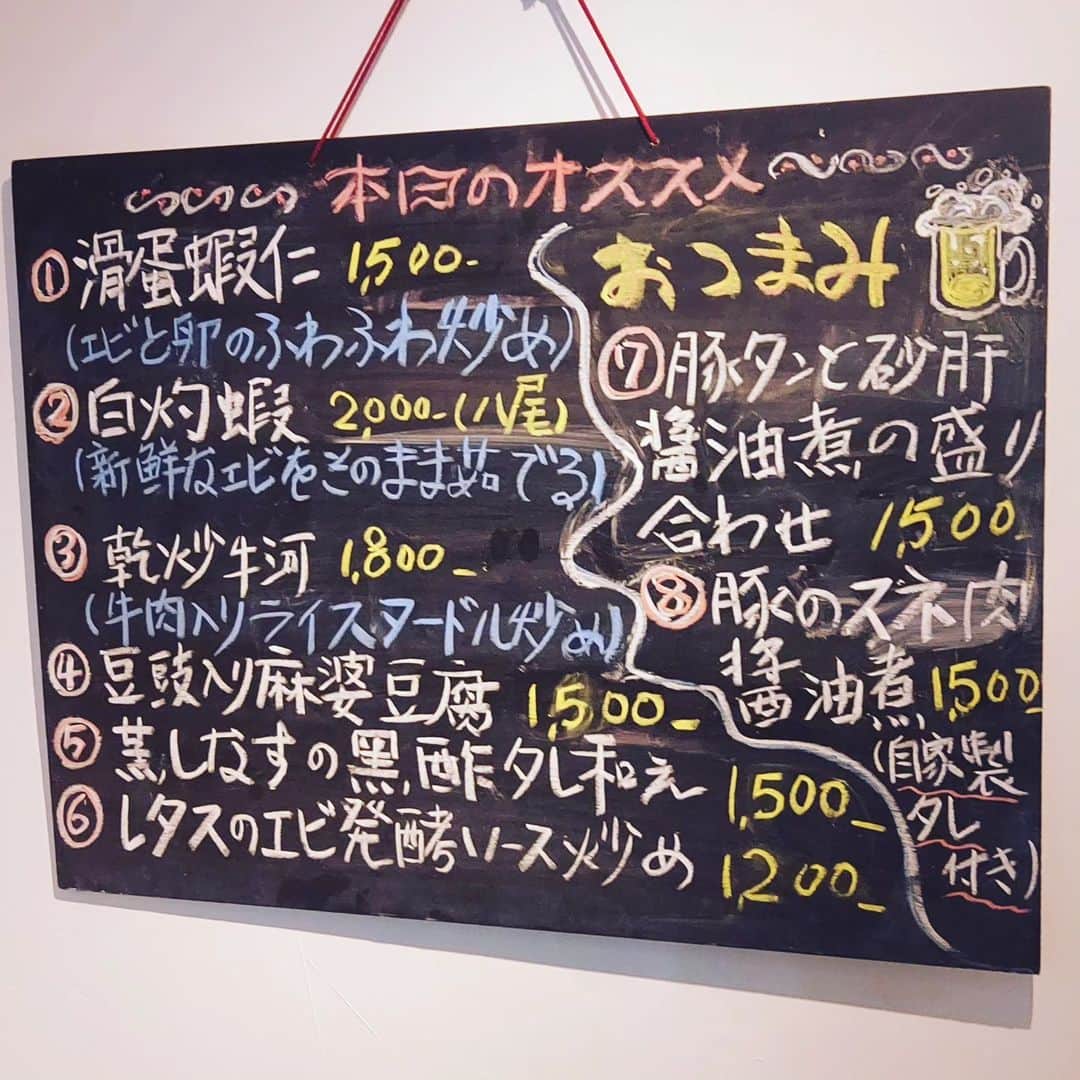 本日のオススメ
① 滑蛋蝦仁 1,500-
(エビと卵のふわふわ炒め)
② 白灼蝦 2,000-(八尾)
(新鮮なエビをそのまま茹でる)
③ 乾炒牛河 1,800-
(牛肉入りライスヌードル炒め)
④ 豆豉入り麻婆豆腐 1,500-
⑤ 蒸しなすの黒酢タレ和え 1,500-
⑥ レタスのエビ発酵ソース炒め 1,200-
おつまみ
⑦ 豚タンと砂肝
醤油煮の盛り
合わせ 1,500-
⑧ 豚のスネ肉
醤油煮 1,500-
(自家製
タレ
付き)